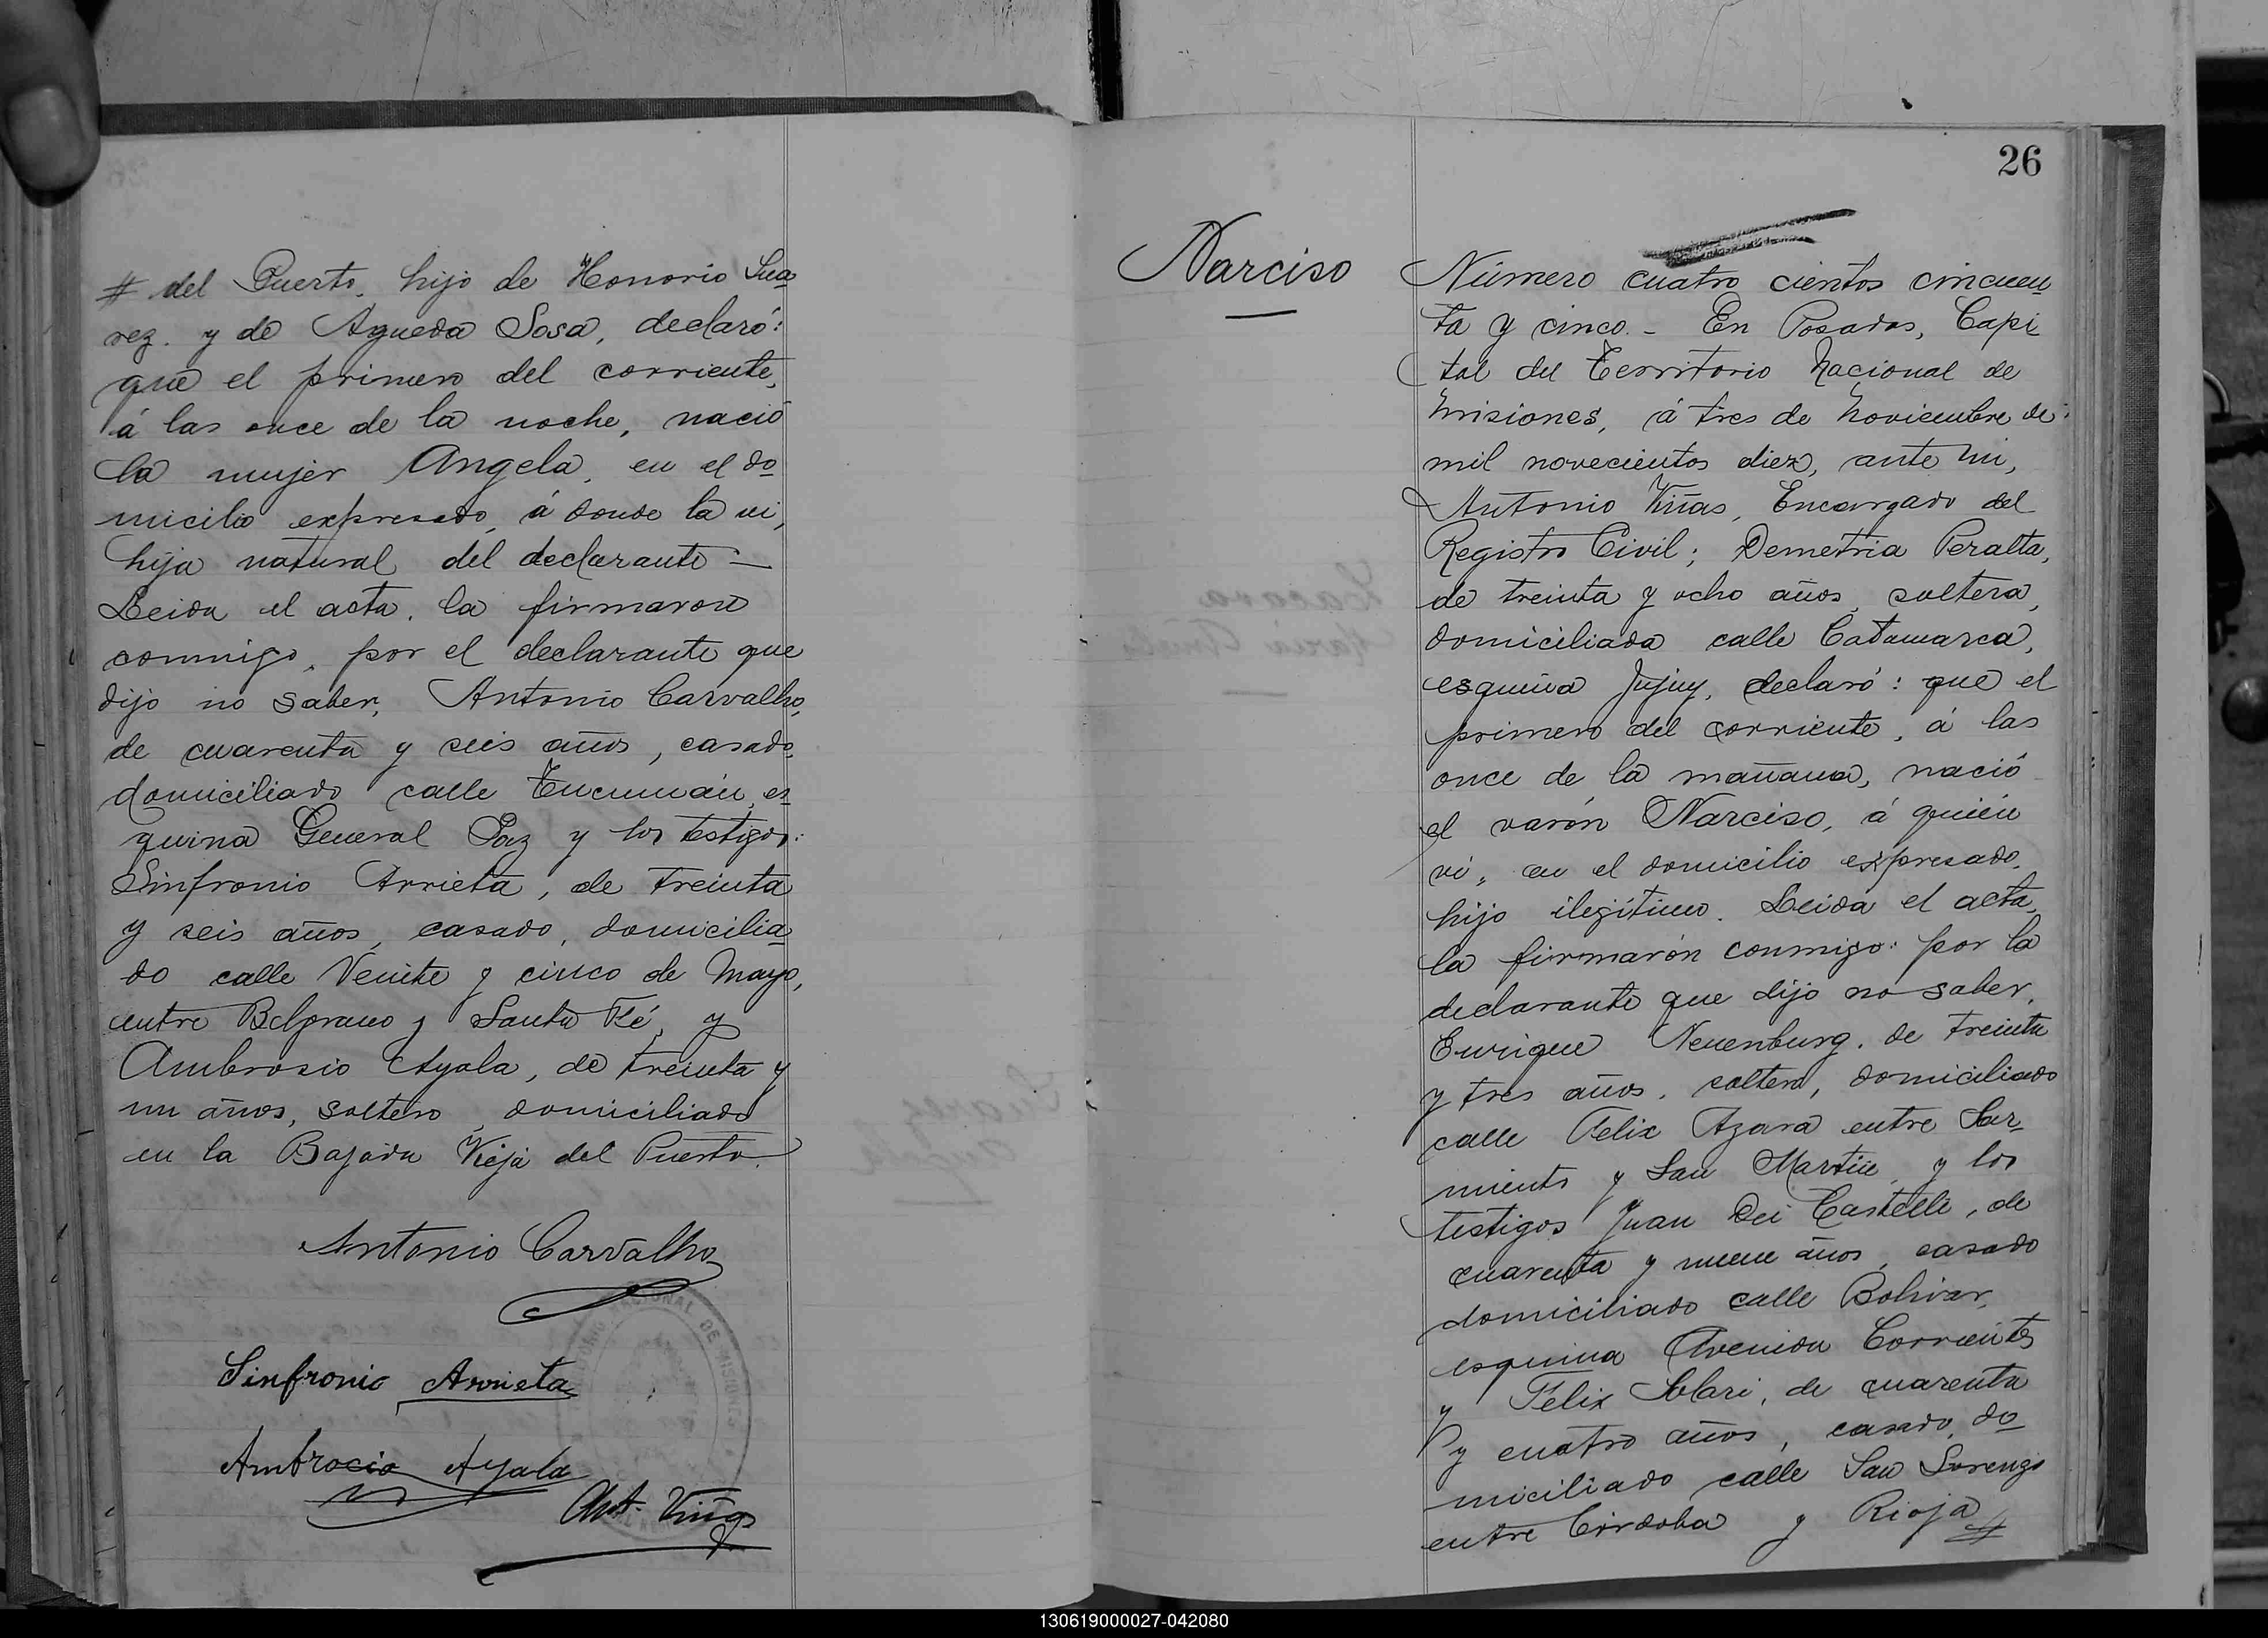 # del Puerto, hijo de Honorio Sua
rez. y de Agueda Sosa, declaró:
que el primero del corriente,
á las once de la noche, nació
la mujer Angela, en el do
micilio expresado, á donde la vi,
hija natural del declarante —
Leida el acta, la firmaron
conmigo, por el declarante que
dijo no saber, Antonio Carvalho,
de cuarenta y seis años, casado,
domiciliado calle Tucumán, es
quina General Paz y los testigos:
Sinfronio Arrieta, de treinta
y seis años, casado, domicilia
do calle Veinte y cinco de Mayo,
entre Belgrano y Santa Fé, y
Ambrosio Ayala, de treinta y
un años, soltero, domiciliado
en la Bajada Vieja del Puerto.
Antonio Carvalho
Sinfronio Arrieta
Ambrocio Ayala
Ant. Viñas
NACIONAL DE MISIONES
26
Narciso
Número cuatro cientos cincuen
ta y cinco. - En Posadas, Capi
tal del Territorio Nacional de
Misiones, á tres de Noviembre de
mil novecientos diez, ante mi,
Antonio Viñas, Encargado del
Registro Civil; Demetria Peralta,
de treinta y ocho años, soltera,
domiciliada calle Catamarca,
esquina Jujuy, declaró: que el
primero del corriente, á las
once de la mañana, nació
el varón Narciso, á quién
vi, en el domicilio expresado,
hijo ilegítimo. Leida el acta,
la firmarón conmigo: por la
declarante que dijo no saber,
Enrique Neuenburg, de treinta
y tres años, soltero, domiciliado
calle Felix Azara entre Sar
miento y San Martin, y los
testigos Juan Dei Castelli, de
cuarenta y nueve años, casado
domiciliado calle Bolivar,
esquina Avenida Corrientes
y Felix Solari, de cuarenta
y cuatro años, casado, do
miciliado calle San Lorenzo
entre Córdoba y Rioja #
130619000027-042080